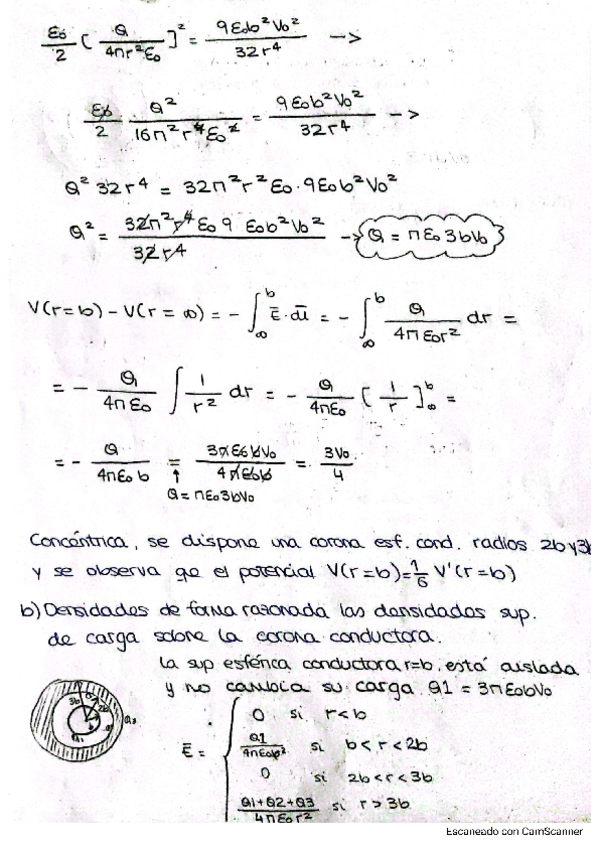 ε₀/2 [ Q/4πr²ε₀ ]² = 9ε₀b²V₀²/32r⁴ –>
ε₀/2 Q²/16π²r⁴ε₀² = 9ε₀b²V₀²/32r⁴ –>
Q² 32r⁴ = 32π²r²ε₀·9ε₀b²V₀²
Q² = 32π²r⁴ε₀9 ε₀b²V₀²/32r⁴ –> Q = πε₀3bV₀
V(r=b) - V(r=∞) = - ∫_∞^b E̅·dl̅ = - ∫_∞^b Q/4πε₀r² dr =
= - Q/4πε₀ ∫ 1/r² dr = - Q/4πε₀ [ 1/r ]_∞^b =
= - Q/4πε₀b = 3πε₀bV₀/4πε₀b = 3V₀/4
↑
Q = πε₀3bV₀
Concéntrica, se dispone una corona esf. cond. radios 2b y 3b
y se observa qe el potencial V(r=b)=1/6 V'(r=b)
b) Densidades de forma razonada las densidades sup.
de carga sobre la corona conductora.
La sup esférica conductora r=b, está aislada
y no cambia su carga Q1 = 3πε₀bV₀
3b
2b
b
Q1
Q3
E̅ =
0 si r<b
Q1/4πε₀b² si b<r<2b
0 si 2b<r<3b
Q1+Q2+Q3/4πε₀r² si r>3b
Escaneado con CamScanner